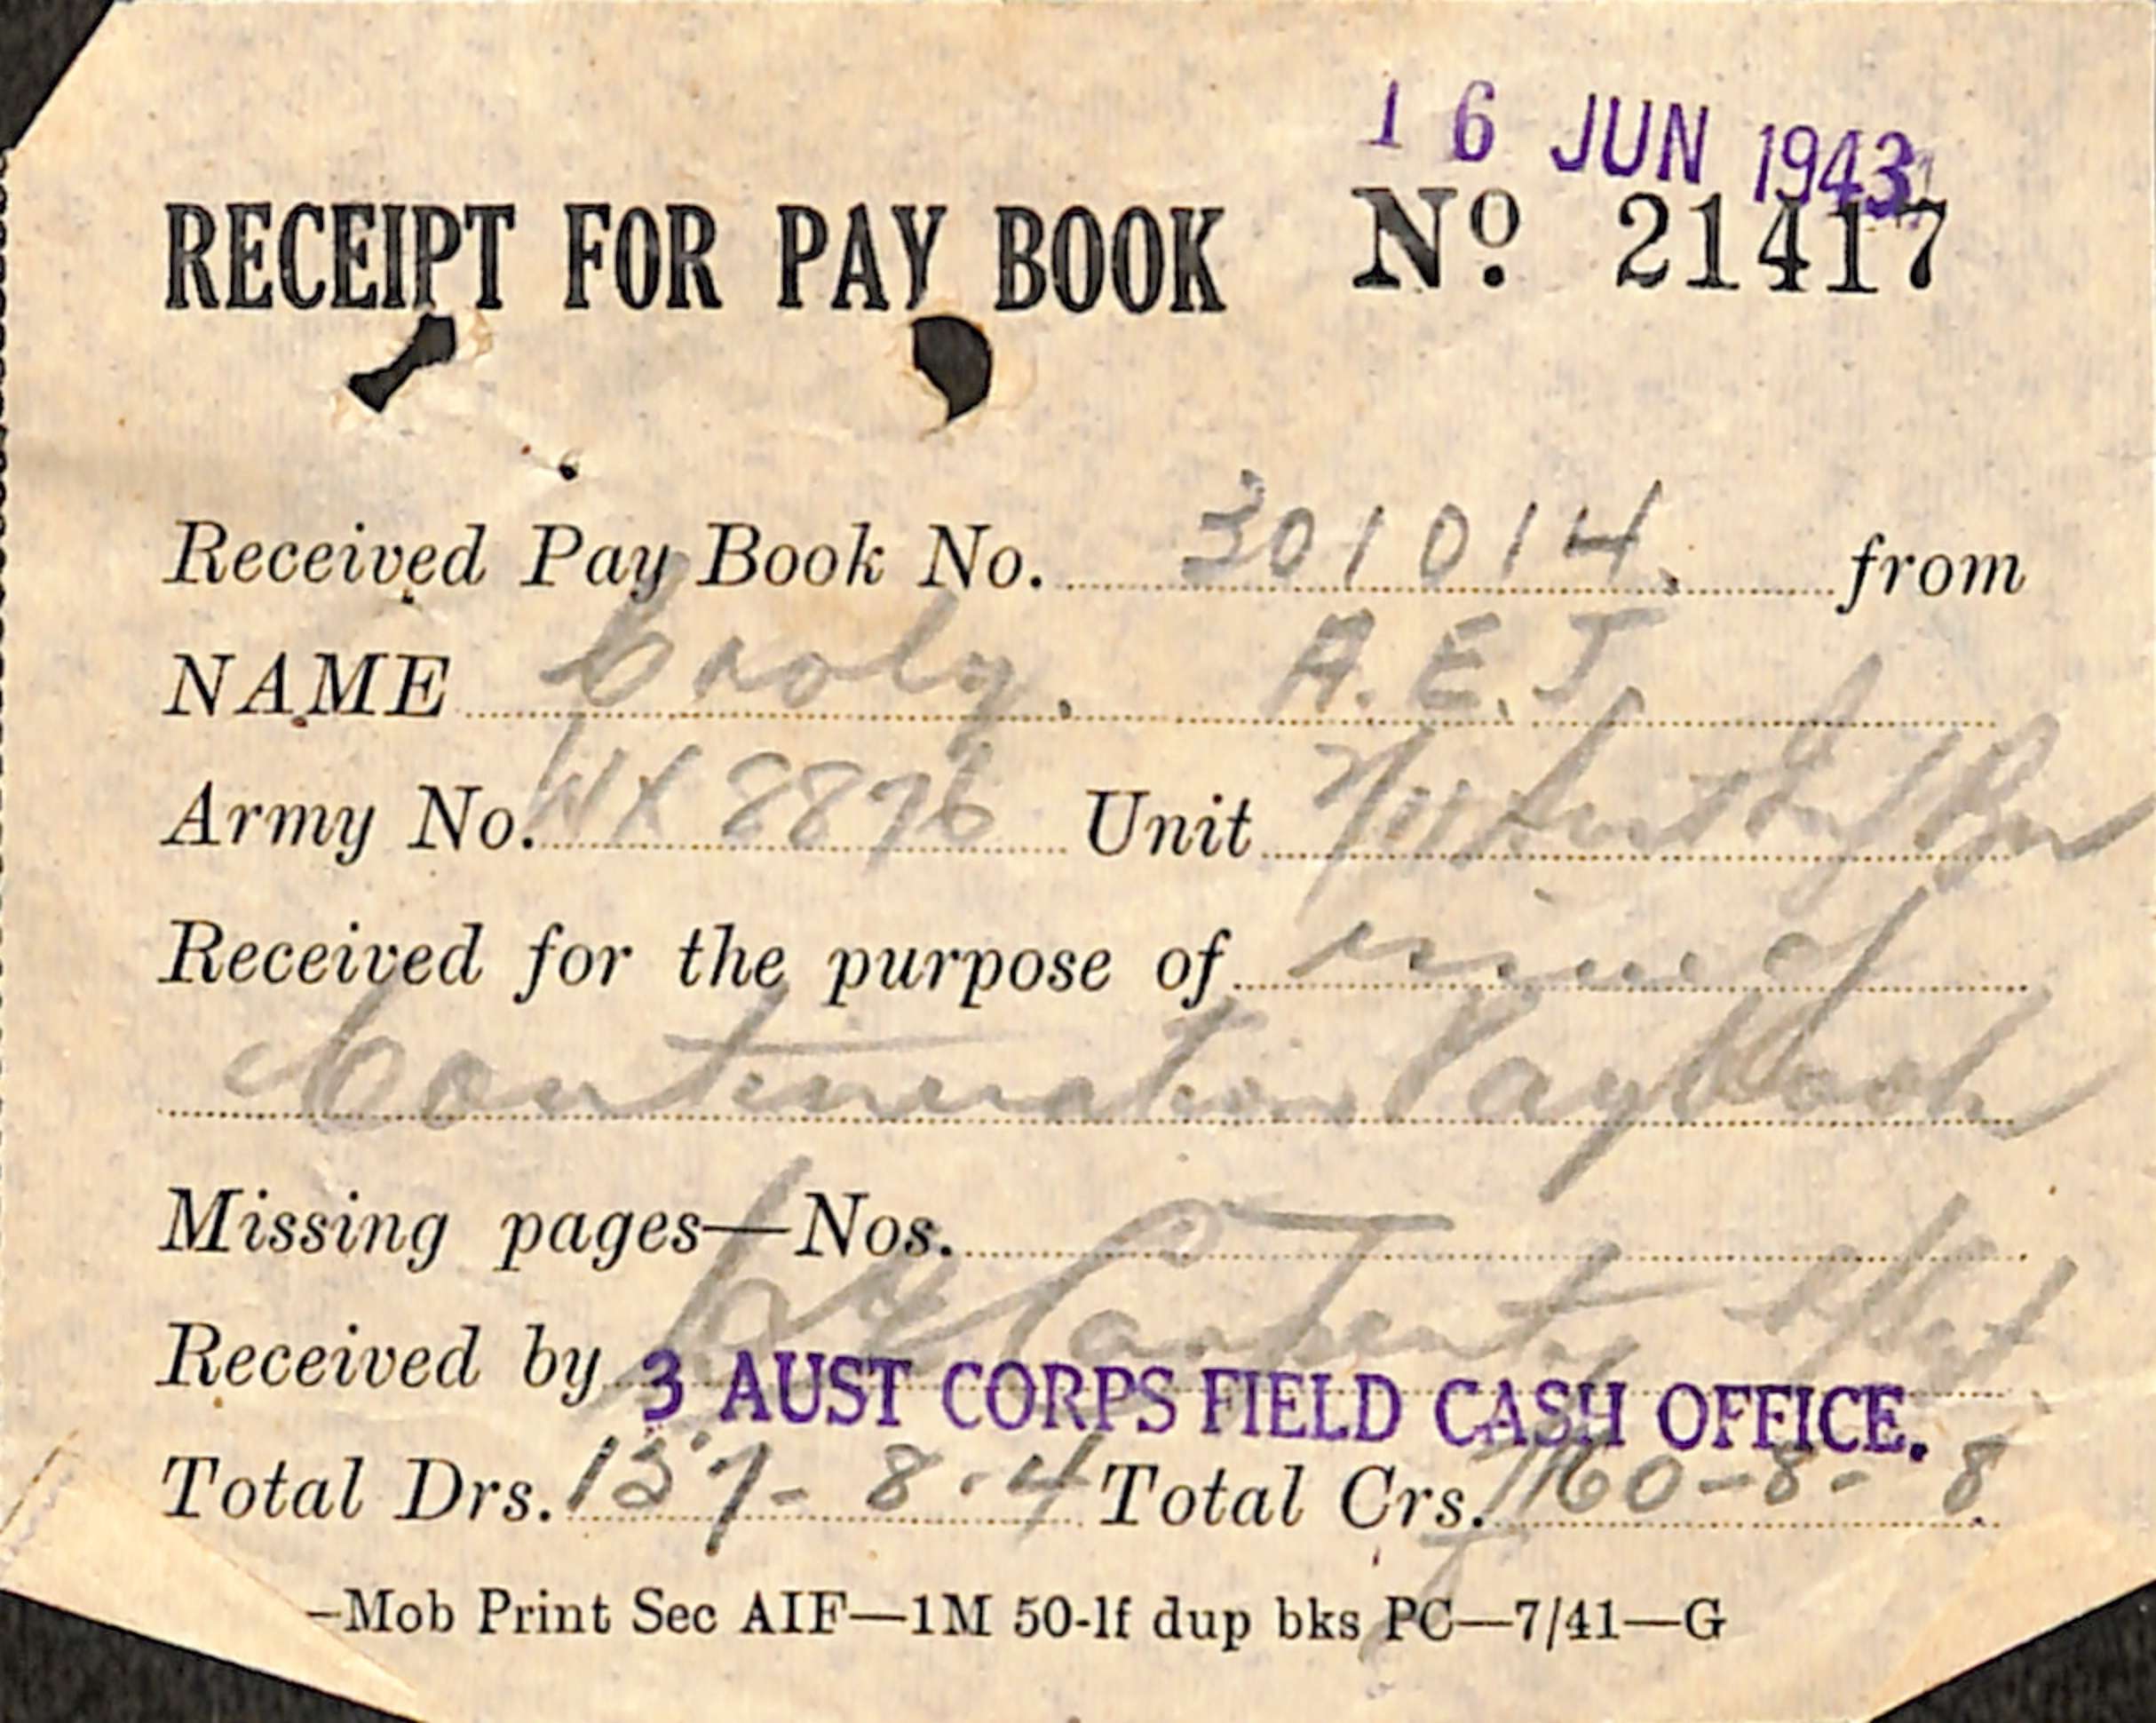 16 JUN 1943
RECEIPT FOR PAY BOOK Nº 21417
Received Pay Book No. 301014. from
NAME Croly. A.E.J
Army No. WX 8876 Unit Aust Inf Bn
Received for the purpose of issue of
Continuation Paybook
Missing pages—Nos.
Received by
3 AUST CORPS FIELD CASH OFFICE.
Total Drs. 157-8-4 Total Crs. 160-8-8
—Mob Print Sec AIF—1M 50-lf dup bks PC—7/41—G